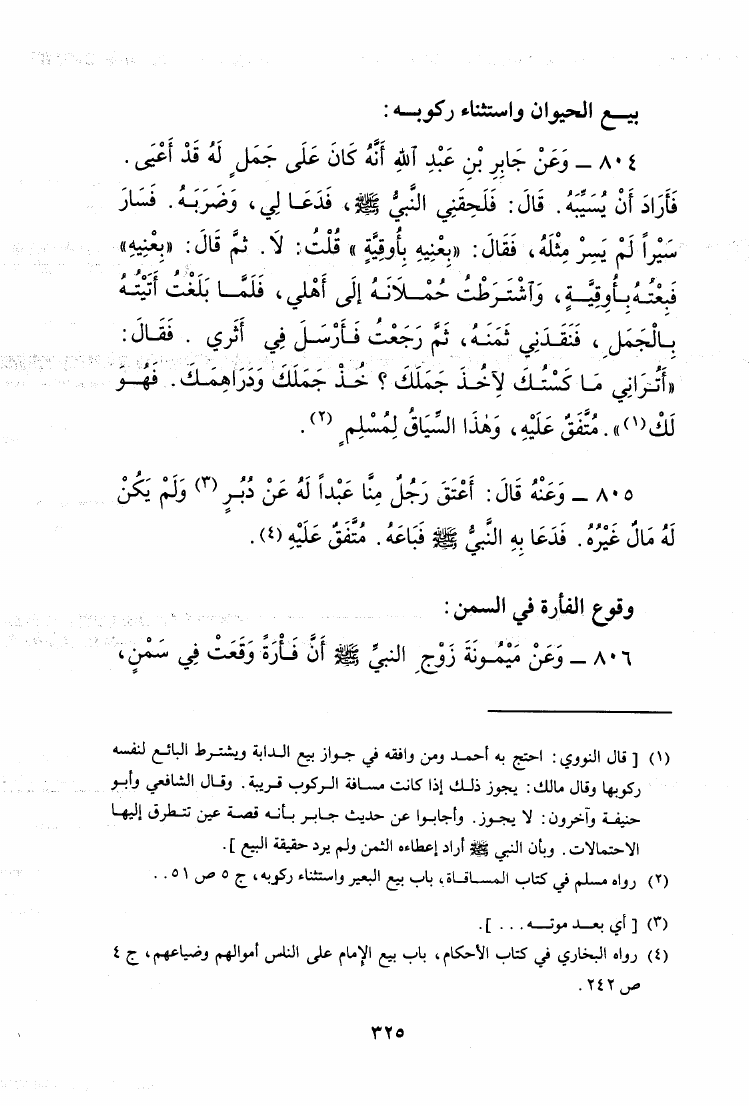 بيع الحيوان واستثناء ركوبه :
٨٠٤ ــ وَعَنْ جَابِرِ بْنِ عَبْدِ ٱللهِ أَنَّهُ كَانَ عَلَى جَمَلٍ لَهُ قَدْ أَعْيَى .
فَأَرَادَ أَنْ يُسَيِّبَهُ . قَالَ : فَلَحِقَنِي النَّبِيُّ ﷺ ، فَدَعَا لِي ، وَضَرَبَهُ . فَسَارَ
سَيْراً لَمْ يَسِرْ مِثْلَهُ ، فَقَالَ : «بِعْنِيهِ بِأُوقِيَّةٍ » قُلْتُ : لَا . ثمَّ قَالَ : «بِعْنِيهِ»
فَبِعْتُهُ بِأُوقِيَّةٍ ، وَٱشْتَرَطْتُ حُمْلَانَهُ إِلَى أَهْلِي ، فَلَمَّا بَلَغْتُ أَتَيْتُهُ
بِالْجَمَلِ ، فَنَقَدَنِي ثَمَنَهُ ، ثمَّ رَجَعْتُ فَأَرْسَلَ فِي أَثَرِي . فَقَالَ :
«أَتُرَانِي مَا كَسْتُكَ لِآخُذَ جَمَلَكَ ؟ خُذْ جَمَلَكَ وَدَرَاهِمَكَ . فَهُوَ
لَكَ(١)» . مُتَّفَقٌ عَلَيْهِ ، وَهٰذَا السِّيَاقُ لِمُسْلِمٍ (٢) .
٨٠٥ ــ وَعَنْهُ قَالَ : أَعْتَقَ رَجُلٌ مِنَّا عَبْداً لَهُ عَنْ دُبُرٍ (٣) وَلَمْ يَكُنْ
لَهُ مَالٌ غَيْرُهُ . فَدَعَا بِهِ النَّبِيُّ ﷺ فَبَاعَهُ . مُتَّفَقٌ عَلَيْهِ (٤) .
وقوع الفأرة في السمن :
٨٠٦ ــ وَعَنْ مَيْمُونَةَ زَوْجِ النبيِّ ﷺ أَنَّ فَأْرَةً وَقَعَتْ فِي سَمْنٍ ،
(١) [ قال النووي : احتج به أحمد ومن وافقه في جواز بيع الدابة ويشترط البائع لنفسه
ركوبها وقال مالك : يجوز ذلك إذا كانت مسافة الركوب قريبة . وقال الشافعي وأبو
حنيفة وآخرون : لا يجوز . وأجابوا عن حديث جابر بأنه قصة عين تتطرق إليها
الاحتمالات . وبأن النبي ﷺ أراد إعطاءه الثمن ولم يرد حقيقة البيع ] .
(٢) رواه مسلم في كتاب المساقاة ، باب بيع البعير واستثناء ركوبه ، ج ٥ ص ٥١ . .
(٣) [ أي بعد موته . . . ] .
(٤) رواه البخاري في كتاب الأحكام ، باب بيع الإمام على الناس أموالهم وضياعهم ، ج ٤
ص ٢٤٢ .
٣٢٥